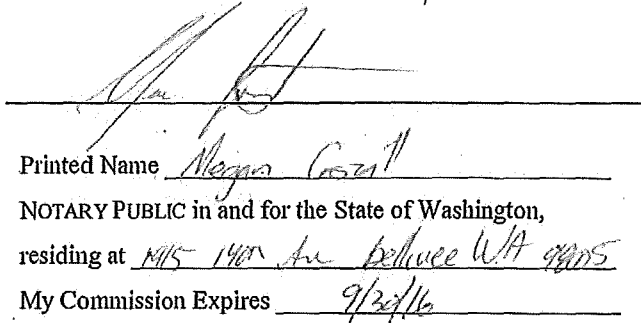 Printed Name Megan
NOTARY PUBLIC in and for the State of Washington,
residing at 1915 140th Ave Bellevue WA
My Commission Expires 9/30/16